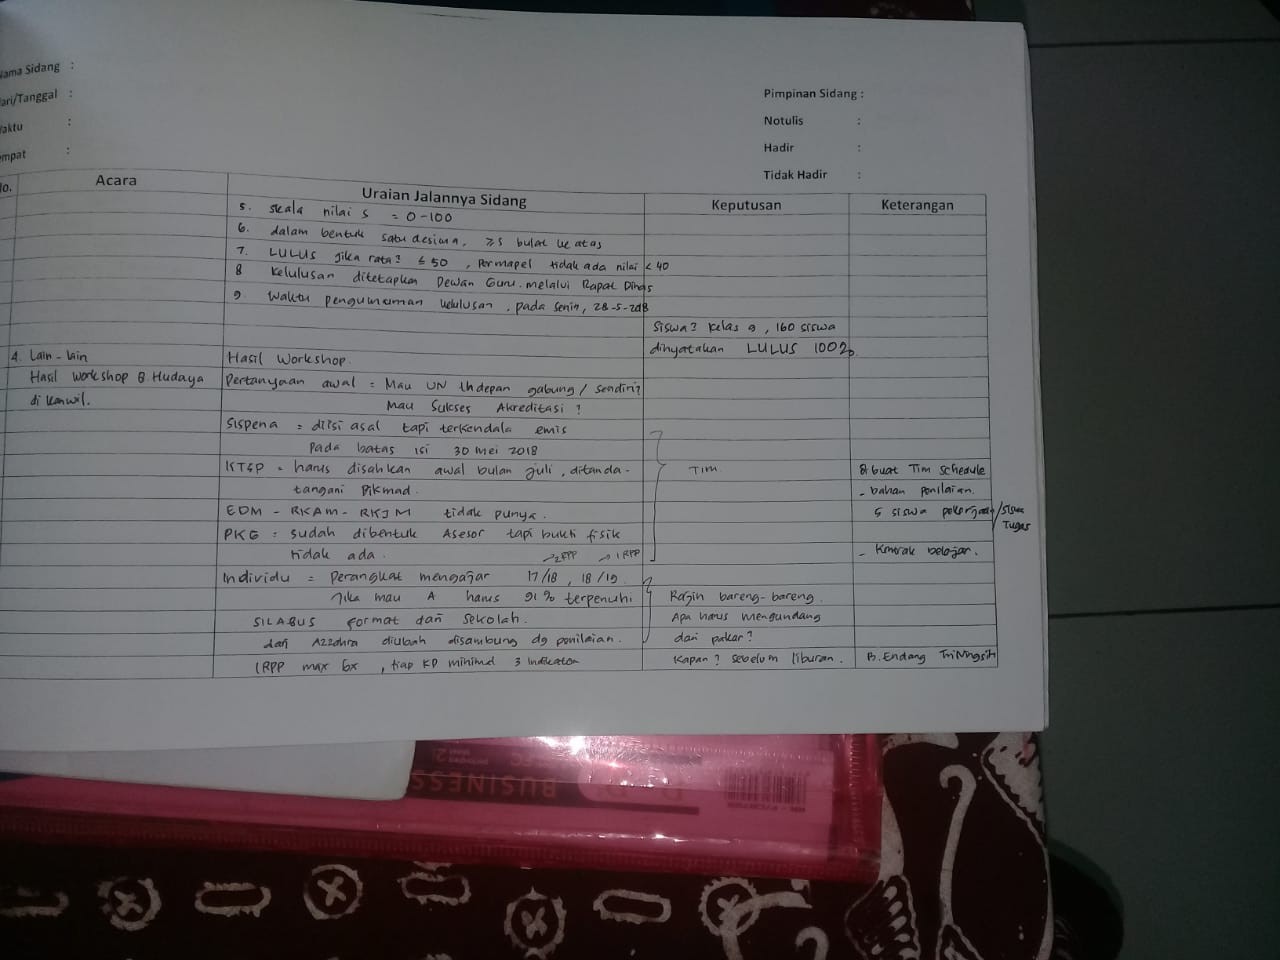 Nama Sidang :
Hari/Tanggal :
Waktu :
Tempat :
Pimpinan Sidang :
Notulis :
Hadir :
Tidak Hadir :
No. Acara Uraian Jalannya Sidang Keputusan Keterangan
5. skala nilai S = 0-100
6. dalam bentuk satu desima, ≥5 bulat ke atas
7. LULUS jika rata² ≤ 50, Per mapel tidak ada nilai < 40
8 Kelulusan ditetapkan Dewan Guru melalui Rapat Dinas
9. Waktu pengumuman kelulusan, pada Senin, 28-5-2018
Siswa² kelas 9, 160 siswa
dinyatakan LULUS 100%
4. Lain-lain Hasil Workshop.
Hasil workshop B. Hudaya Pertanyaan awal = Mau UN th depan gabung/sendiri?
di kanwil. Mau Sukses Akreditasi?
Sispena = diisi asal tapi terkendala emis
Pada batas isi 30 Mei 2018
KTSP = harus disahkan awal bulan juli, ditanda- TIM. buat Tim schedule
tangani - bahan penilaian.
EDM - RKAM - RKJM tidak punya. siswa
Tugas
PKG = sudah dibentuk Asesor tapi bukti fisik
tidak ada. →2RPP →1RPP - Kontrak belajar.
Individu = Perangkat mengajar 17/18, 18/19
Jika mau A harus 91% terpenuhi bareng-bareng.
SILABUS format dari sekolah. Apa harus mengundang
dari Azzahra diubah disambung dg penilaian. dari pakar?
1RPP max 6x, tiap KD minimal 3 Indikator Kapan? sebelum liburan. B. Endang TriNingsih
BUSINESS